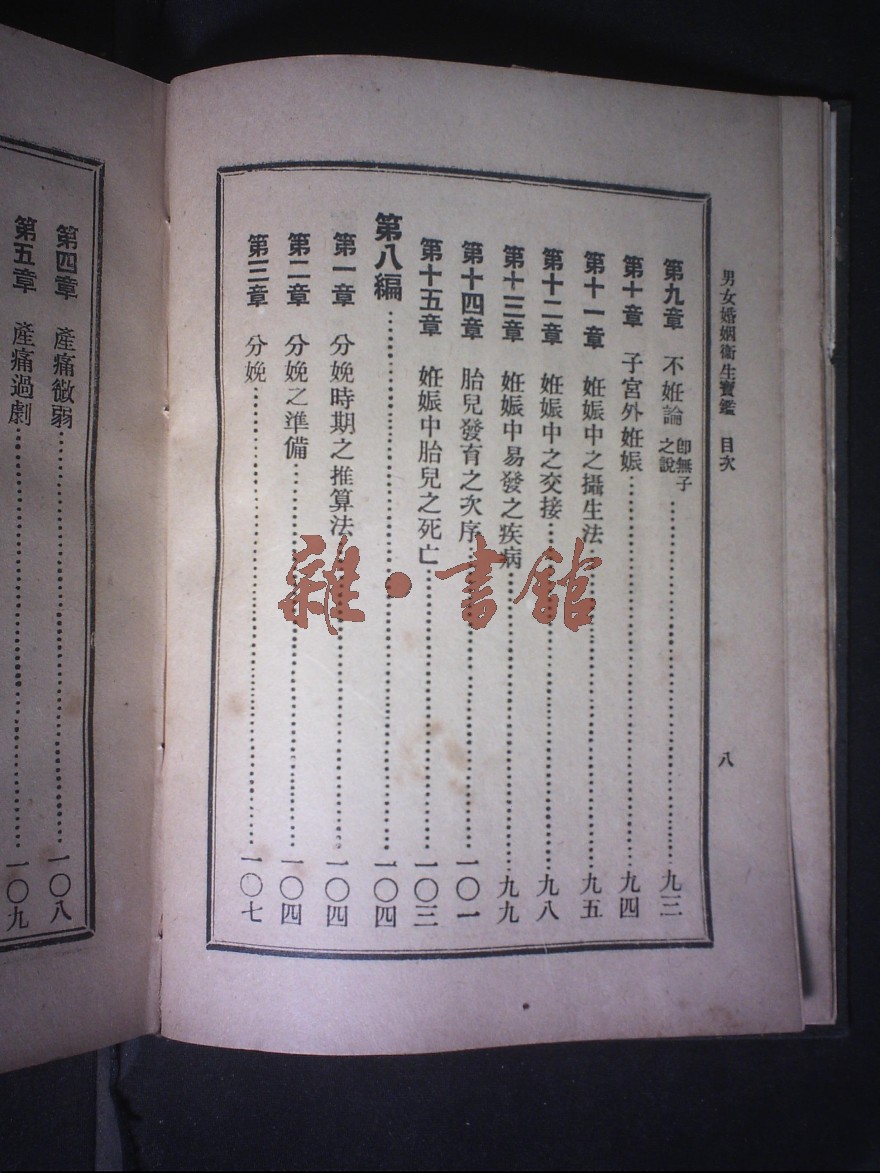 男女婚姻衛生寶鑑　目次
八
第九章　不姙論　卽無子之說……九三
第十章　子宮外姙娠……九四
第十一章　姙娠中之攝生法……九五
第十二章　姙娠中之交接……九八
第十三章　姙娠中易發之疾病……九九
第十四章　胎兒發育之次序……一〇一
第十五章　姙娠中胎兒之死亡……一〇三
第八編……一〇四
第一章　分娩時期之推算法……一〇四
第二章　分娩之準備……一〇四
第三章　分娩……一〇七
第四章　產痛微弱……一〇八
第五章　產痛過劇……一〇九
雜·書館